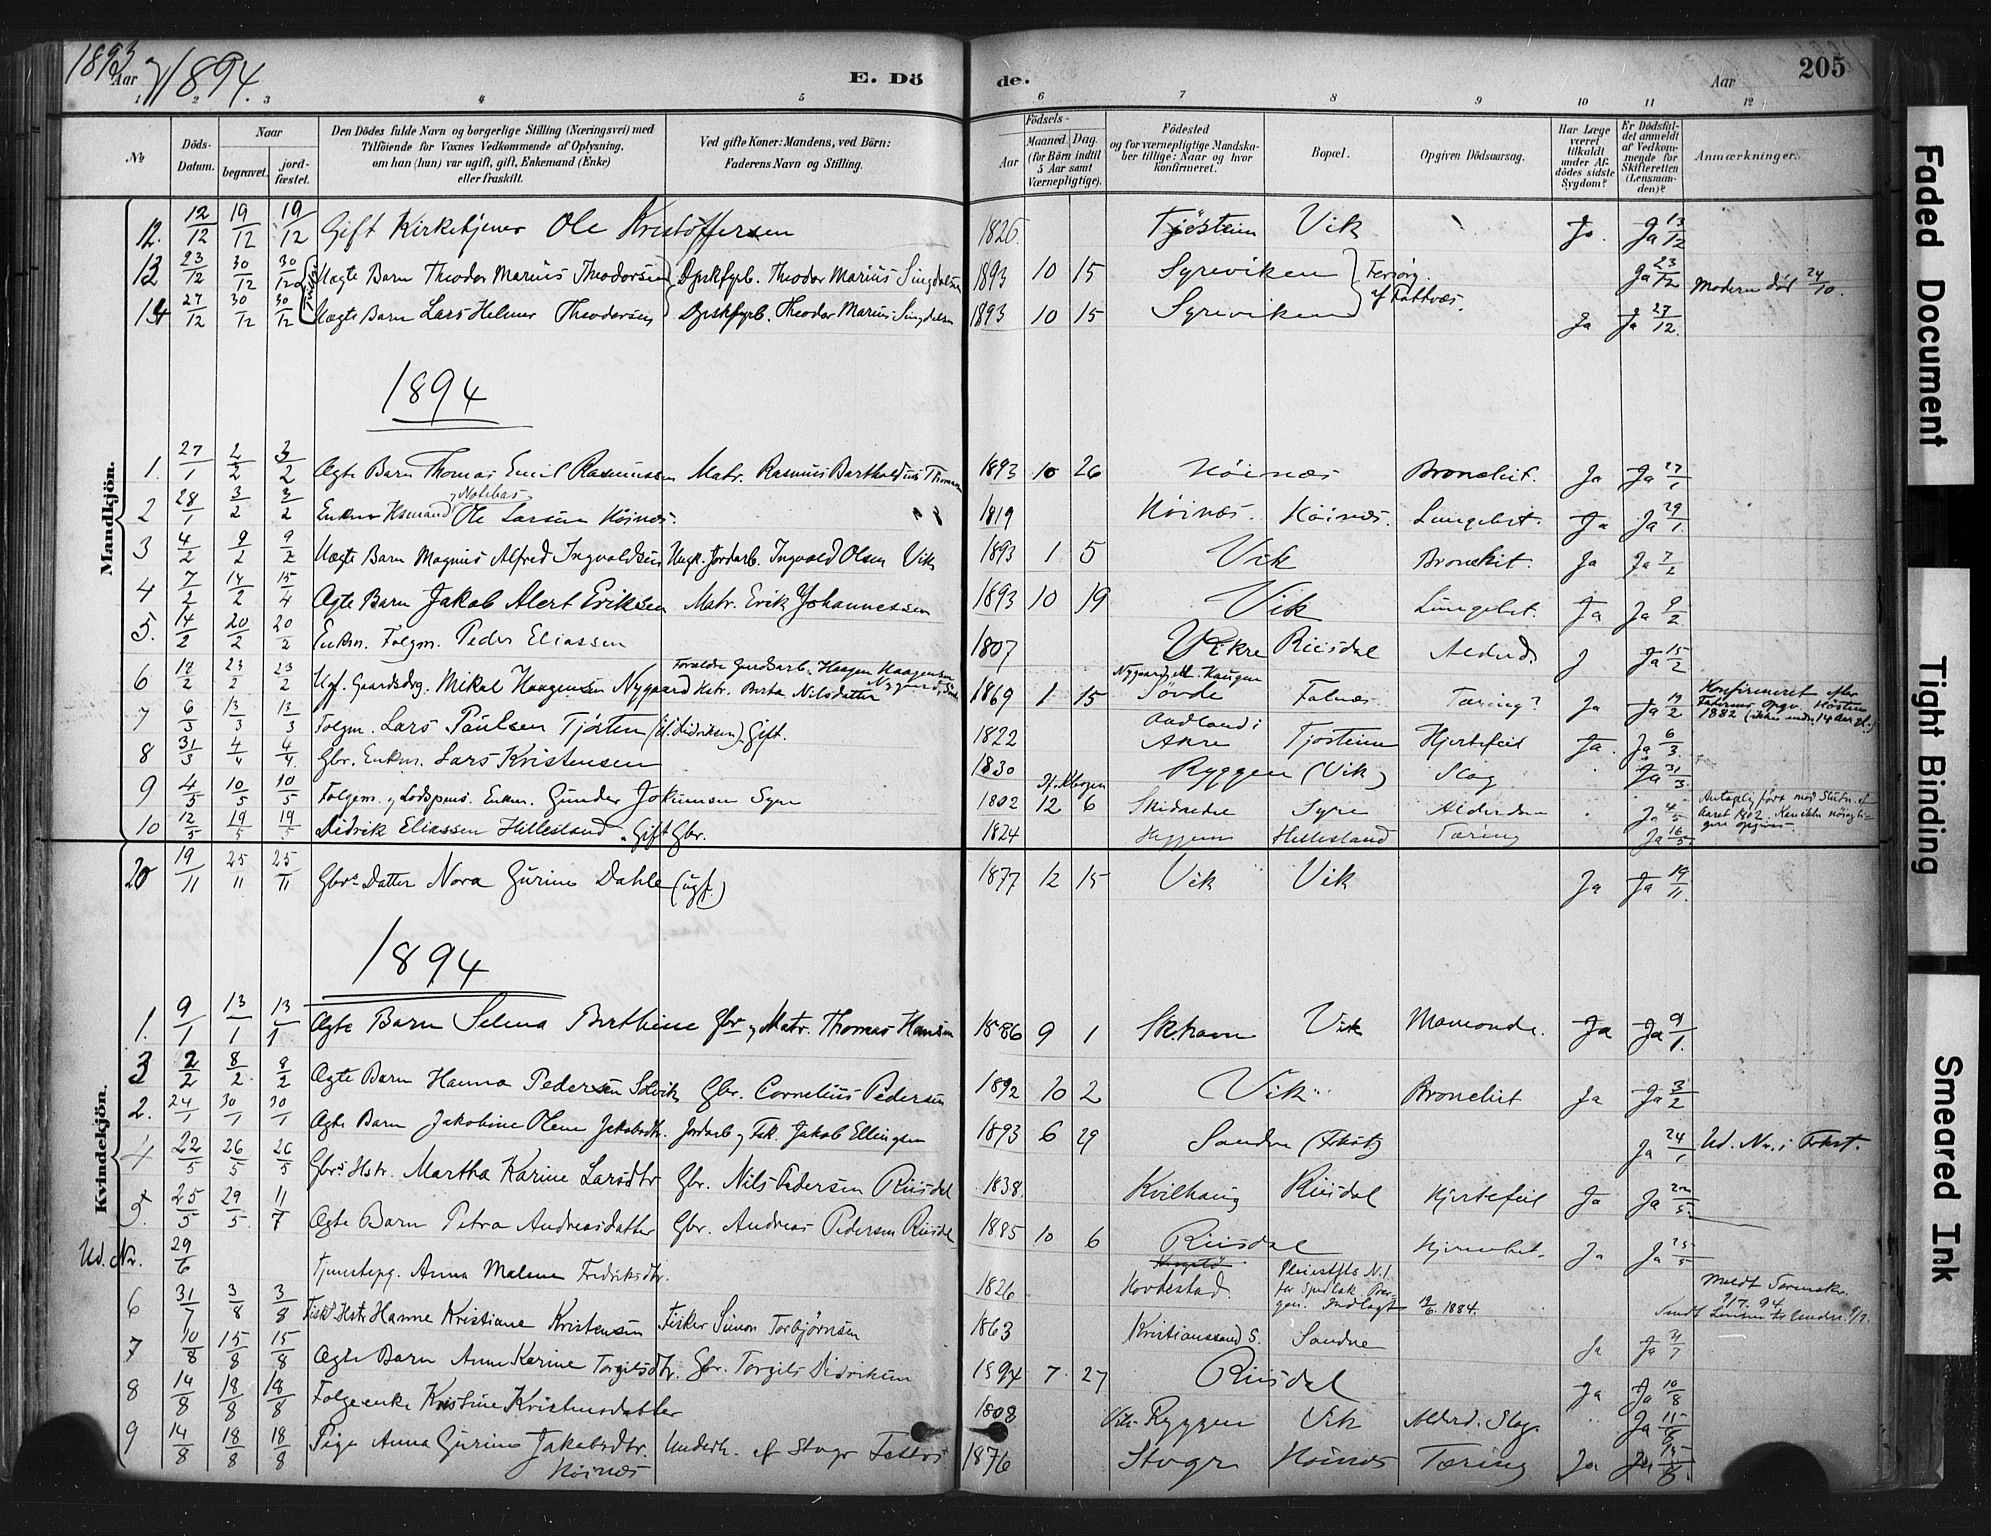 1893 og 1894.
Aar
E. Dö
de.
Aar
205
1 2 3 4 5 6 7 8 9 10 11 12
No
Döds-Datum.
Naar
begravet.
jord-fæstet.
Den Dödes fulde Navn og borgerlige Stilling (Næringsvei) med
Tilföiende for Voxnes Vedkommende af Oplysning,
om han (hun) var ugift, gift, Enkemand (Enke)
eller fraskilt.
Ved gifte Koner: Mandens, ved Börn:
Faderens Navn og Stilling.
Födsels-
Aar
Maaned. Dag.
(for Börn indtil
5 Aar samt
Værnepligtige).
Födested
og for værnepligtige Mandska-
ber tillige: Naar og hvor
konfirmeret.
Bopæl.
Opgiven Dödsaarsag.
Har Læge
været
tilkaldt
under Af-
dödes sidste
Sygdom?
Er Dödsfal-
det anmeldt
af Vedkom-
mende for
Skifteretten
(Lensman-
den)?
Anmærkninger.
Mandkjön.
12. 12/12 19/12 19/12 Gift Kirketjener Ole Kristoffersen 1826. Tjöstein Vik Ja. Ja 13/12
13 23/12 30/12 30/12 Uægte Barn Theodor Marius Theodorsen Theodor Marius 1893 10 15 Syreviken Forsörg. af Fattvæs. Ja 23/12 Moderen död 24/10.
14 27/12 30/12 30/12 Uægte Barn Lars Helmer Theodorsen Theodor Marius 1893 10 15 Syreviken Ja Ja 27/12.
1894
1. 27/1 2/2 3/2 Ægte Barn Thomas Emil Rasmussen Matr. Rasmus Bartholdius Thomsen 1893 10 26 Höinæs Bronchit. Ja Ja 27/1
2 28/1 3/2 3/2 Enkm Husmand og Notebas Ole Larsen Höinæs. 1819 Höinæs. Höinæs. Lungebet. Ja Ja 29/1.
3 4/2 9/2 9/2 Uægte Barn Magnus Alfred Ingvaldsen Ungk. Jordarb. Ingvald Olsen Vik 1893 1 5 Vik Bronchit. Ja Ja 7/2
4 7/2 14/2 15/4 Ægte Barn Jakob Alert Eriksen Matr. Erik Johannessen 1893 10 19 Vik Lungebet. Ja Ja 9/2
5. 14/2 20/2 20/2 Enkm. Folgm. Peder Eliassen 1807 Vikre Riisdal Alderd. J Ja 15/2
6 18/2 23/2 23/2 Ugf. Gaardsdrg. Mikal Haagensen Nygaard Forældre Gaardsarb. Haagen Haagensen Nygaard, Hstr. Berta Nilsdatter 1869 1 15 Nygaard, Haugen Sövde Falnæs Tæring? Ja Ja 19/2 Konfirmeret efter Faderens Opgv. Hösten 1882 (ikke endn. 14 Aar gl.)
7 6/3 13/3 13/3 Folgm. Lars Paulsen Tjösten Gift. 1822 Aadland i Akre Tjostein Hjertefeil Ja. Ja 6/3.
8 31/3 4/4 4/4. Gbr. Enkm. Lars Kristensen 1830 Ryggen (Vik) Slag Ja 31/3.
9 4/5 10/5 10/5 Folgem. og Lodspens. Enkm. Gunder Jokumsen Syre 1802 12 6 Syre Alderdom Ja 4/5
10 12/5 19/5 19/5 Didrik Eliassen Hillesland. Gift Gbr. 1824 Hillesland Tæring Ja 16/5.
Kvindekjön.
20 19/11 25/11 25/11 Gbrs Datter Nora Gurine Dahle (ugf.) 1877 12 15 Vik Vik Ja Ja 19/11.
1894
1. 9/1 13/1 13/1 Ægte Barn Selma Berthine Gbr og Matr. Thomas Hansen 1886 9 1 Sk.havn Vik Ja Ja 9/1.
3 2/2 8/2. 8/2 Ægte Barn Hanna Pedersen Solvik Gbr. Cornelius Pedersen 1892 10 2 Vik Bronchit Ja Ja 3/2
2. 24/1 30/1 30/1 Ægte Barn Jakobine Olene Jakobsdtr. Jordarb og Fsk. Jakob Ellingsen 1893 6 29 Sandve Ja 24/1 Ud. Nr. i
4 22/5 26/5 26/5 Gbrs Hstr. Martha Karine Larsdtr Gbr. Nils Pedersen Riisdal 1838. Kvilhaug Riisdal Hjertefeil Ja Ja 22/5.
5. 25/5 29/5. 11/7 Ægte Barn Petra Andreasdatter Gbr. Andreas Pedersen Riisdal 1885 10 6 Riisdal Ja Ja 25/5
Ud. Nr. 29/6 Tjenestepg. Anna Malene Fredriksdtr. 1826 Hovdestad. Pleiestfts N. 1. Indlagt 19/6. 1884. Meldt 9/7. 94
6 31/7 3/8 3/8 Fisk. Hstr Hanne Kristiane Kristensen Fisker Simon Torbjørnsen 1863 Kristianssand S. Sandve Ja Ja 31/7
7 10/8 15/8 15/8 Ægte Barn Anne Karine Torgilsdtr. Gbr. Torgils Didriksen 1894 7 27 Riisdal Ja Ja 10/8
8 14/8 18/8 18/8 Folgeenke Kristine Kristensdatter 1808 Ryggen Vik Alderd. Slag. Ja 15/8
9 14/8 18/8 18/8 Pige Anna Gurine Jakobsdtr. Höinæs Underh. af 1876 Höinæs Tæring Ja Ja
Faded Document
Tight Binding
Smeared Ink